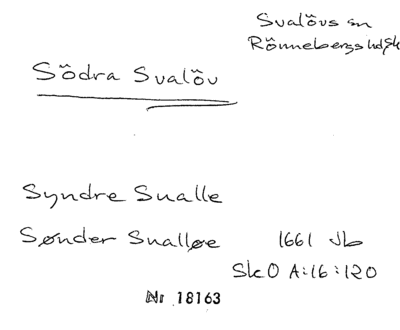 Svalövs sn
Rönnebergs hd Sk
Södra Svalöv
Syndre Sualle
Sønder Sualløe 1661 Jb
SkO A:16:120
Nr 18163